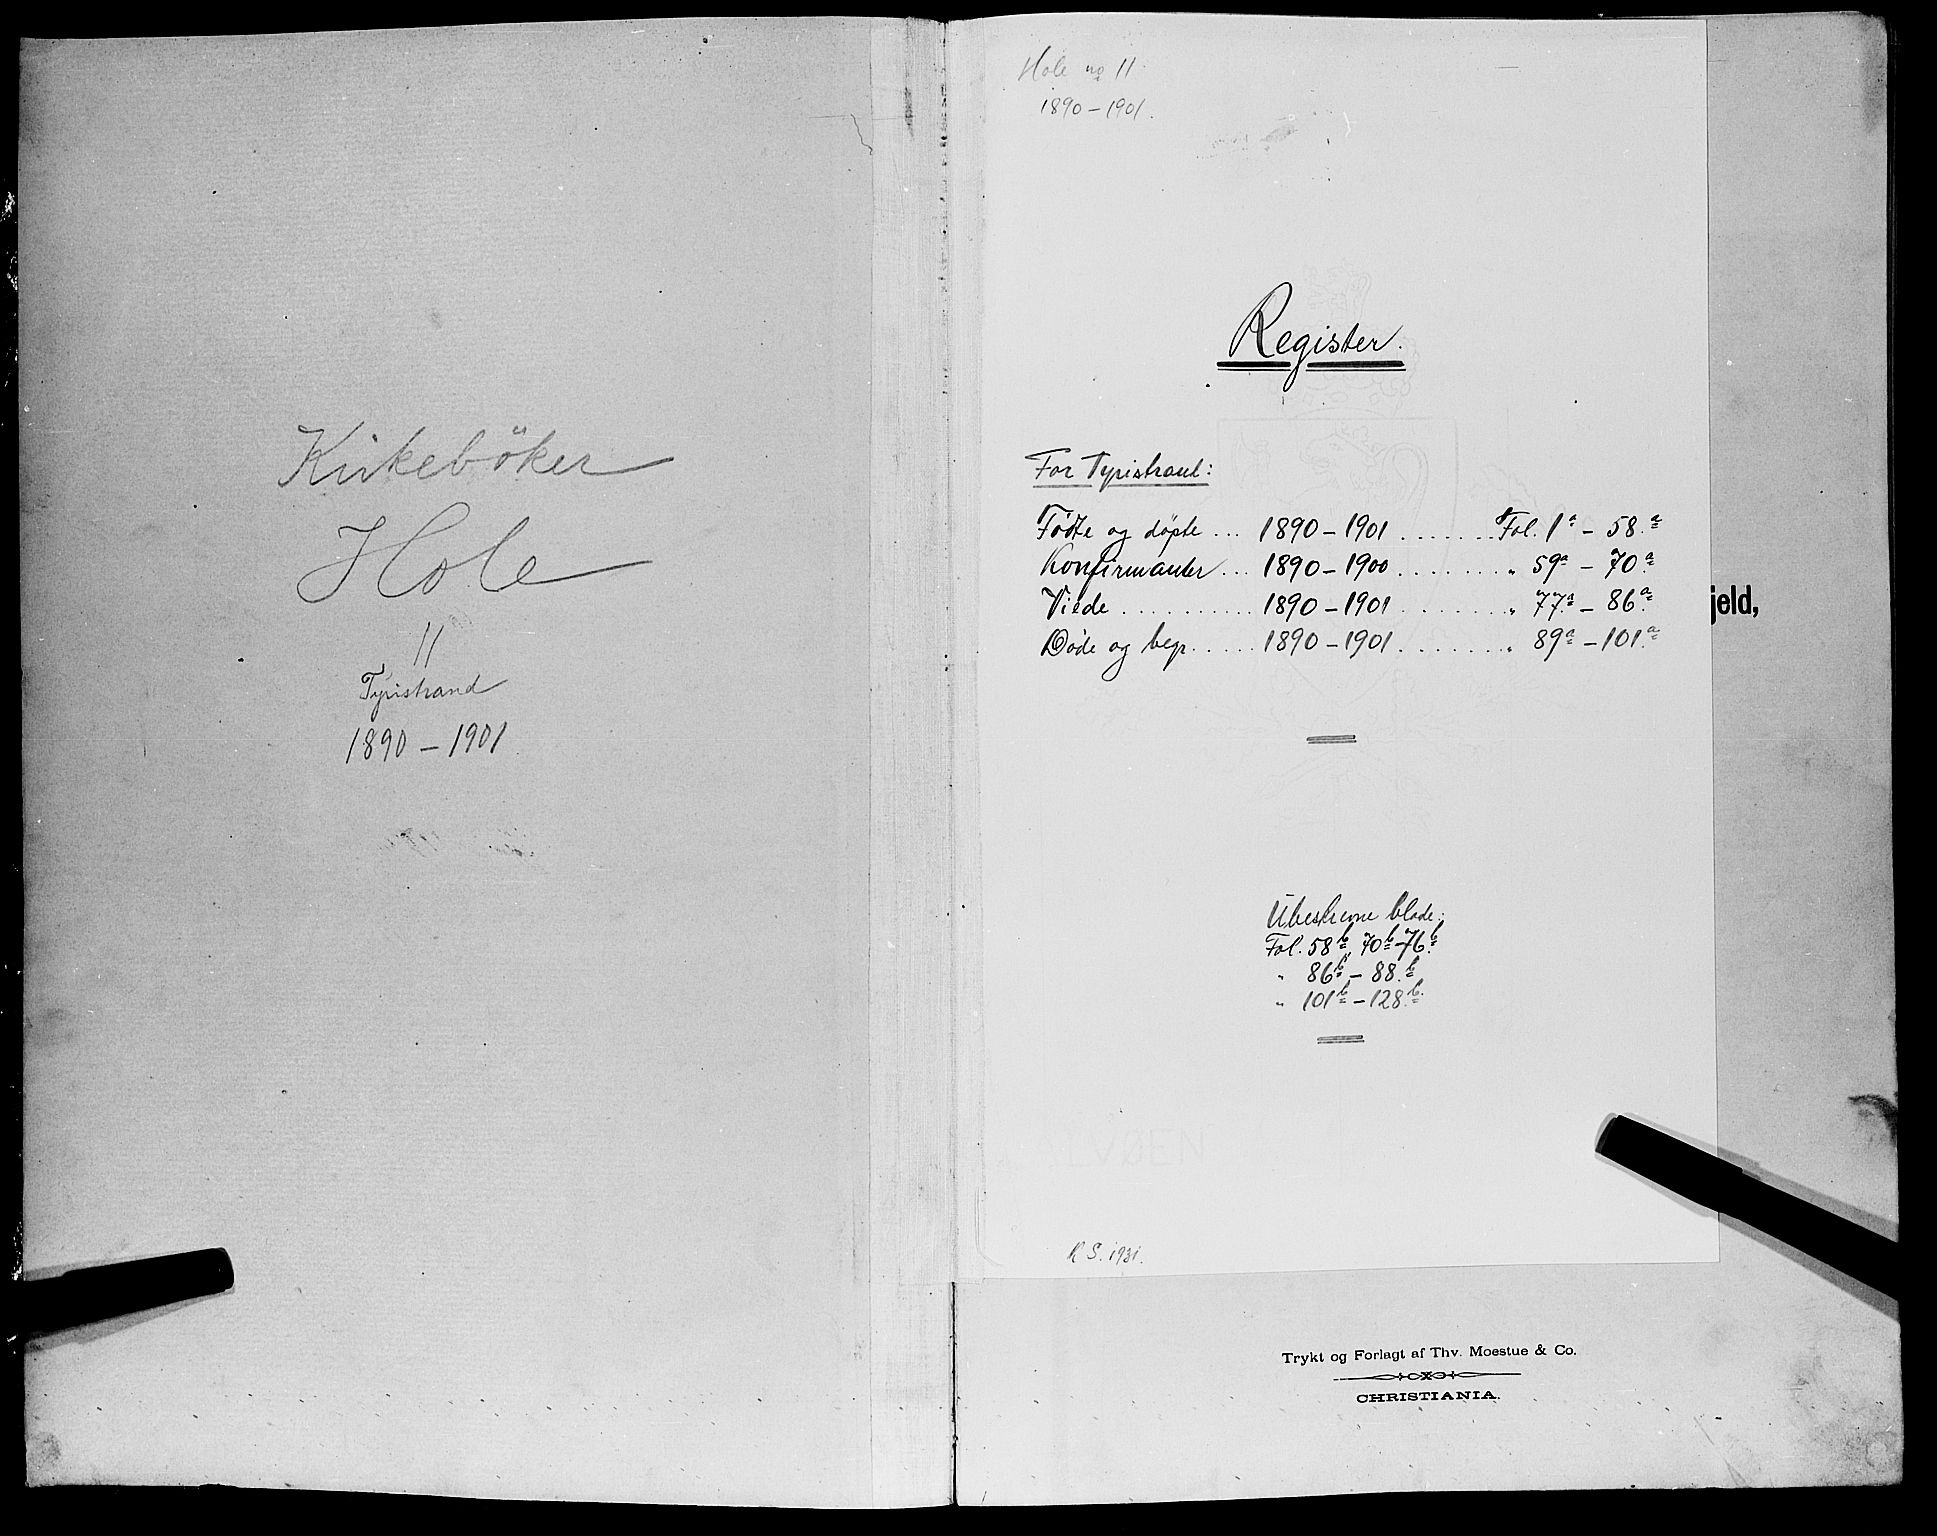 Kirkeböker
Hole
11
Tyristrand
1890 – 1901
Hole no 11
1890 – 1901.
Register.
For Tyristrand:
Fødte og döpte ... 1890 – 1901 ....... Fol. 1a – 58.a
Konfirmanter ... 1890 – 1900 ....... „ 59a – 70.a
Viede .......... 1890 – 1901 ....... „ 77.a – 86.a
Døde og begr. ..... 1890 – 1901 ....... „ 89a – 101.a
jeld,
Ubeskrevne blade:
Fol. 58b, 70b – 76b.
„ 86b – 88.b
„ 101b – 128.b
ALVØEN
R S. 1931.
Trykt og Forlagt af Thv. Moestue & Co.
CHRISTIANIA.